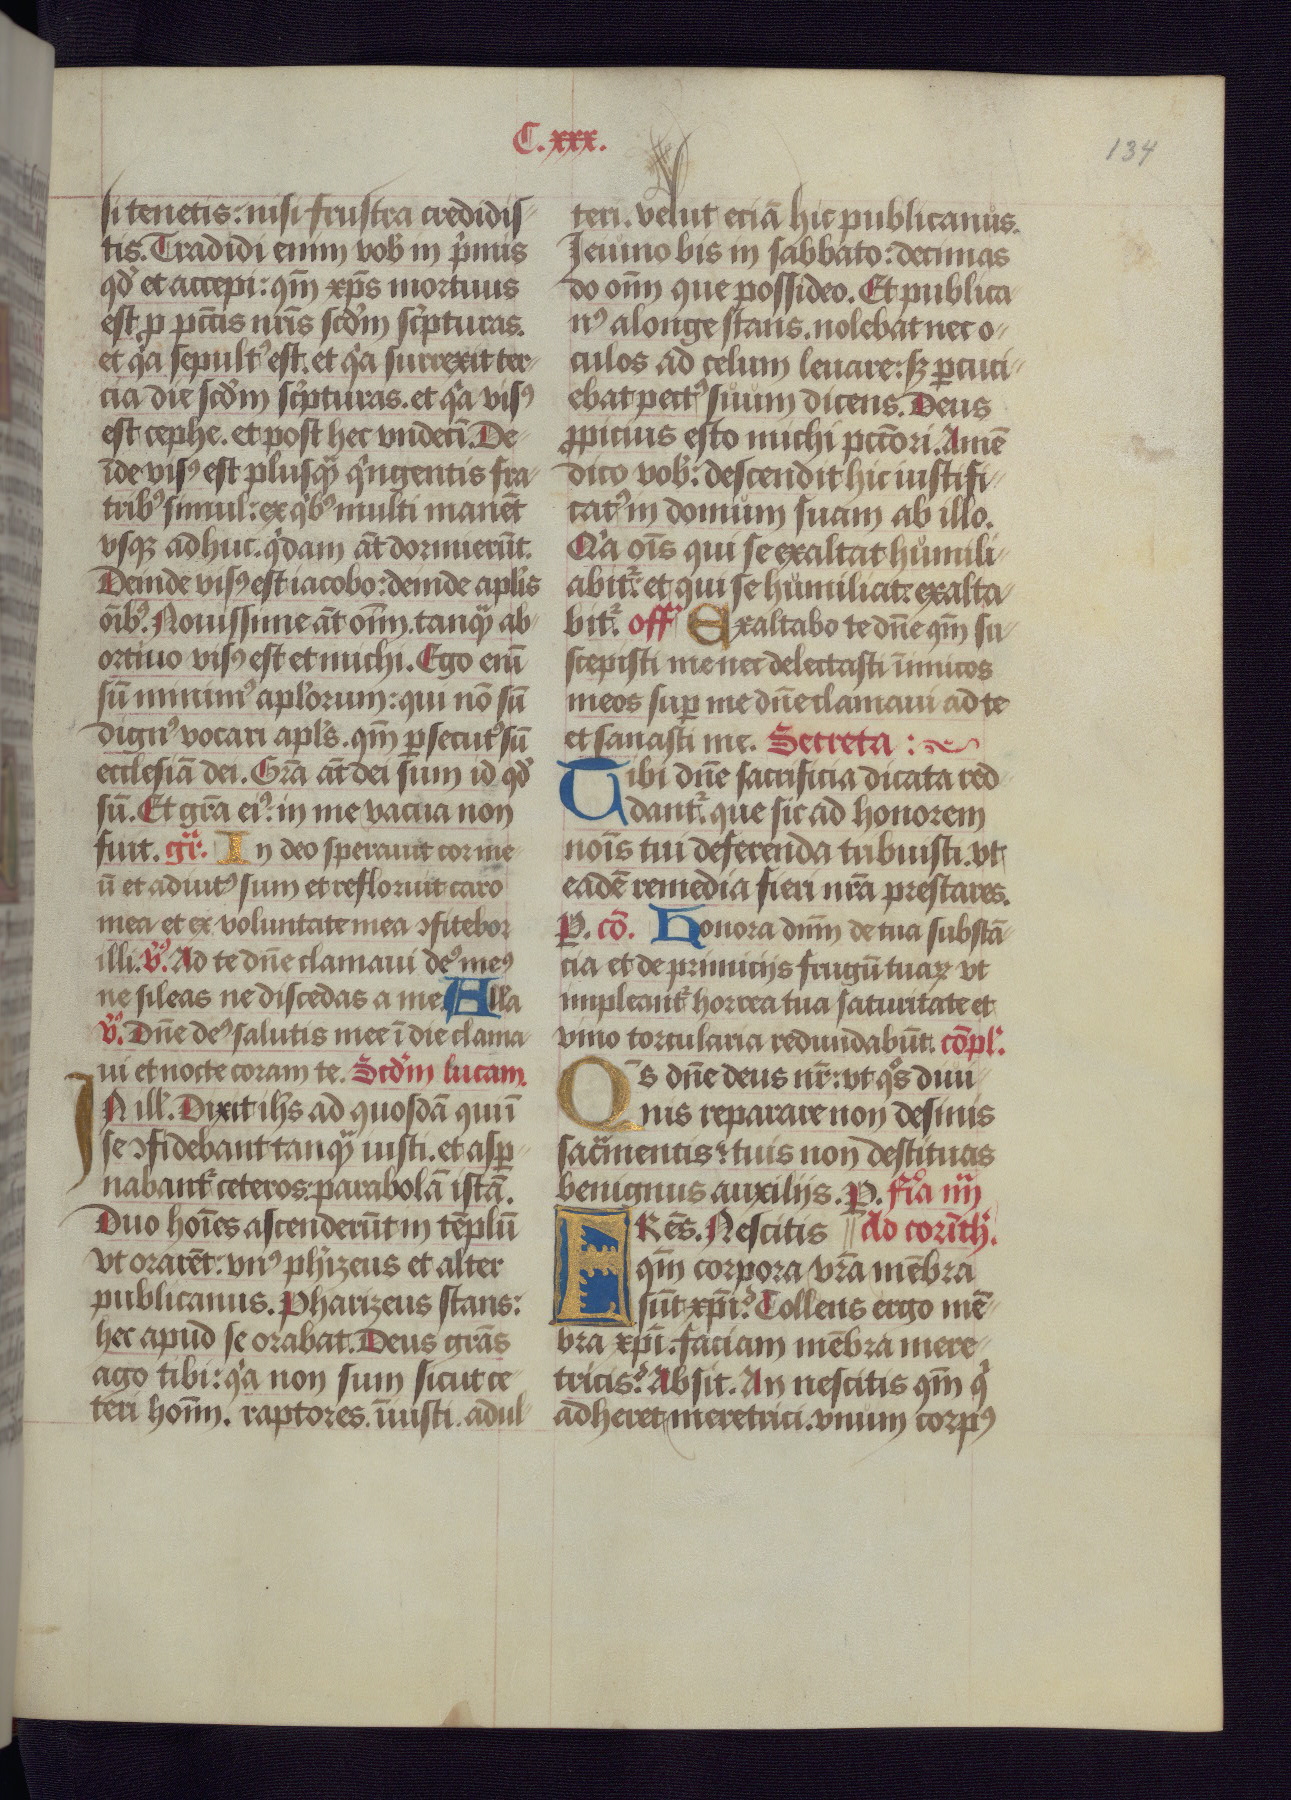 C.xxx.
134
si tenetis: nisi frustra credidis-
tis. Tradidi enim vob̾ in p̾mis
qd̾ et accepi: qm̄ xp̄s mortuus
est ꝓ pctīs nr̄is scd̾m sc̾pturas.
et q̾a sepultꝰ est. et q̾a surrexit ter-
cia die scd̾m sc̾pturas. et q̾a visꝰ
est cephe. et post hec vndeci᷑. De-
īde visꝰ est plusqᷓ q̾ngentis fra-
tribꝰ simul: ex q̾bꝰ multi manēt
vsqꝫ adhuc. q̾dam āt dormierūt.
Deinde visꝰ est iacobo: deinde aplīs
oīb̾ꝰ. Nouissime āt oīm. tanqᷓ ab-
ortiuo visꝰ est et michi. Ego enī
sū minimꝰ aplōrum: qui nō sū
dignꝰ vocari apl̄s. qm̄ ꝑsecutꝰ sū
ecclesiā dei. Grā āt dei sum id qd̾
sū. Et grā eiꝰ in me vacua non
fuit. gr̄. In deo sperauit cor me-
ū et adiutꝰ sum et refloruit caro
mea et ex voluntate mea ꝯfitebor
illi. v̾ꝰ. Ad te dn̄e clamaui deꝰ meꝰ
ne sileas ne discedas a me. Alla
v̾ꝰ. Dn̄e deꝰ salutis mee ī die clama-
ui et nocte coram te. Scd̾m lucam.
IN ill̾. Dixit ih̄s ad quosdā qui ī
se ꝯfidebant tanqᷓ iusti. et asꝑ-
nabant᷑ ceteros: parabolā istā.
Duo hoīes ascenderūt in tēplū
vt orarēt: vnꝰ ph̾izeus et alter
publicanus. Pharizeus stans:
hec apud se orabat. Deus grās
ago tibi: q̾a non sum sicut ce-
teri hoīm. raptores. īiusti. adul-
teri. velut eciā hic publicanus.
Jeiuno bis in sabbato: decimas
do oīm que possideo. Et publica
nꝰ a longe stans. nolebat nec o-
culos ad celum leuare: sꝫ ꝑcuti-
ebat pectꝰ suum dicens. Deus
ꝓpicius esto michi pctōri. Amē
dico vob̾: descendit hic iustifi-
catꝰ in domum suam ab illo.
Q̾a oīs qui se exaltat humili-
abit᷑: et qui se humiliat: exalta-
bit᷑. off̾ᷓ Exaltabo te dn̄e qm̄ su-
scepisti me nec delectasti īimicos
meos suꝑ me dn̄e clamaui ad te
et sanasti me. Secreta:
Tibi dn̄e sacrificia dicata red-
dant᷑. que sic ad honorem
noīs tui deferenda tribuisti. vt
eadē remedia fieri nr̄a prestares.
P. cō. Honora dn̄m de tua substā-
cia et de primicijs frugū tuaꝝ vt
impleant᷑ horrea tua saturitate et
vino torcularia redundabūt. cōpl̾.
Q̄s dn̄e deus nr̄: vt qͦs diui-
nis reparare non desinis
sacᷓmentis: tuis non destituas
benignus auxilijs. P. fīa iiij
FRēs. Nescitis Ad corīth̾.
qm̄ corpora vr̄a mēbra
sūt xp̄i? Tollens ergo mē-
bra xp̄i. faciam mēbra mere-
tricis? Absit. An nescitis qm̄ q̾
adheret meretrici. vnum corpꝰ